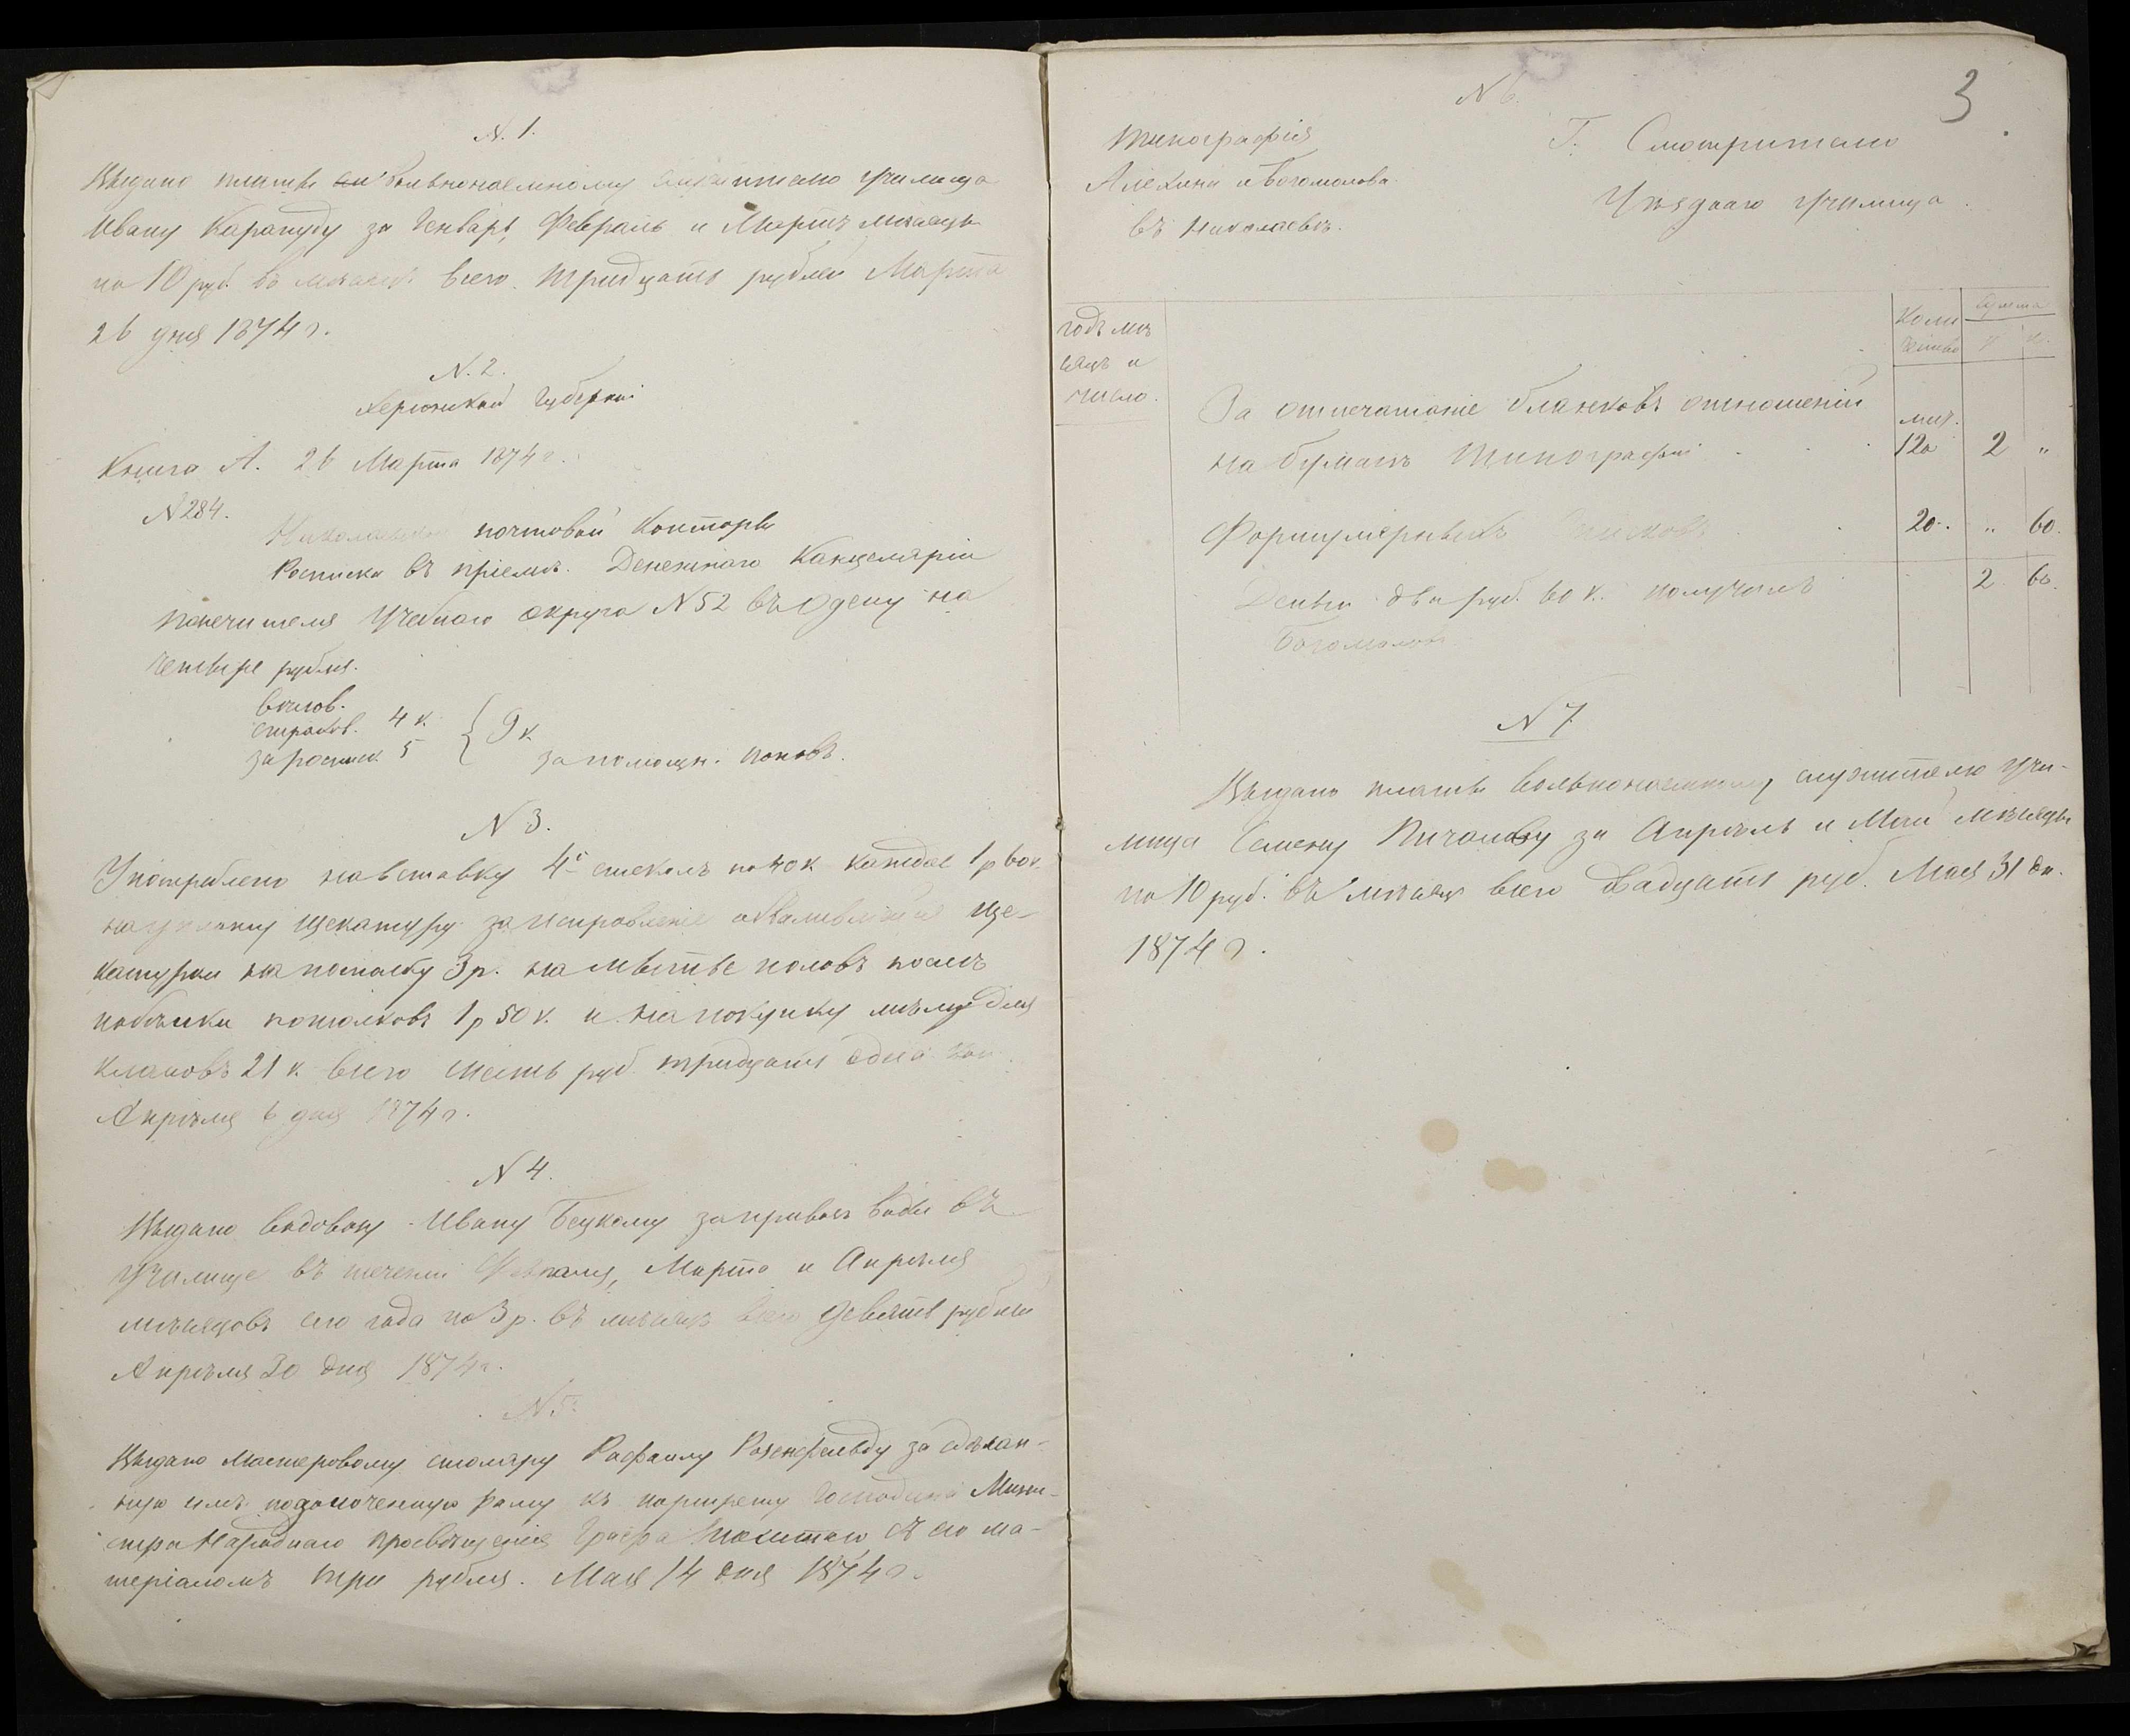 N. 1.
Выдано платы вольнонаемному служителю училища
Ивану Карапуду за Генварь, Февраль и Мартъ месяцы
по 10 руб. въ месяцъ всего тридцать рублей Марта
26 дня 1874 г.
N. 2.
Херсонской Губерніи
Книга А. 26 Марта 1874 г.
N 284.
Николаевской почтовой Конторы
Росписка въ пріемѣ. Денежнаго Канцеляріи
попечителя Учебнаго округа N 52 въ Одессу на
четыре рубля.
весов.
страхов. 4 к.
за роспис. 5 { 9 к.
за помощн.
N 3.
Употреблено на вставку 4х стеколъ по 40 к каждое 1 р 60 к.
на щекатуру за исправленіе обвалившейся ще-
катурки 3 р. на мытье половъ послѣ
побѣлки потолковъ 1 р 50 к. и на покупку мѣлу для
классовъ 21 к. всего шесть руб. тридцать одна коп.
Апрѣля 6 дня 1874 г.
N 4.
Выдано водовозу Ивану Бецкому за привозъ воды въ
училище въ теченіи Февраля, Марта и Апрѣля
мѣсяцовъ сего года по 3 р. въ мѣсяцъ всего девять рублей
Апрѣля 30 дня 1874 г.
N. 5.
Выдано Мастеровому столяру Рафаилу Розенфельду за сдѣлан-
ную имъ позолоченную раму къ портрету Господина Мини-
стра Народнаго просвѣщенія Графа Толстаго съ его ма-
теріаломъ три рубля. Мая 14 дня 1874 г.
3
N 6.
Типографія
Алехина и Богомолова
въ Николаевѣ.
Г. Смотрителю
Уѣзднаго училища.
годъ мѣ
сяцъ и
число.
Коли
чество
Сумма
Р. К.
За отпечатаніе бланковъ отношеній
на бумагѣ Типографіи 120 2 "
Формулярныхъ списковъ 20. " 60.
Деньги два руб. 60 к. получилъ 2 60.
Богомоловъ
N 7
Выдано платы вольнонаемному служителю учи-
лища Семену за Апрѣль и Май мѣсяцы
по 10 руб. въ мѣсяцъ всего двадцать руб. Мая 31 дн.
1874 г.